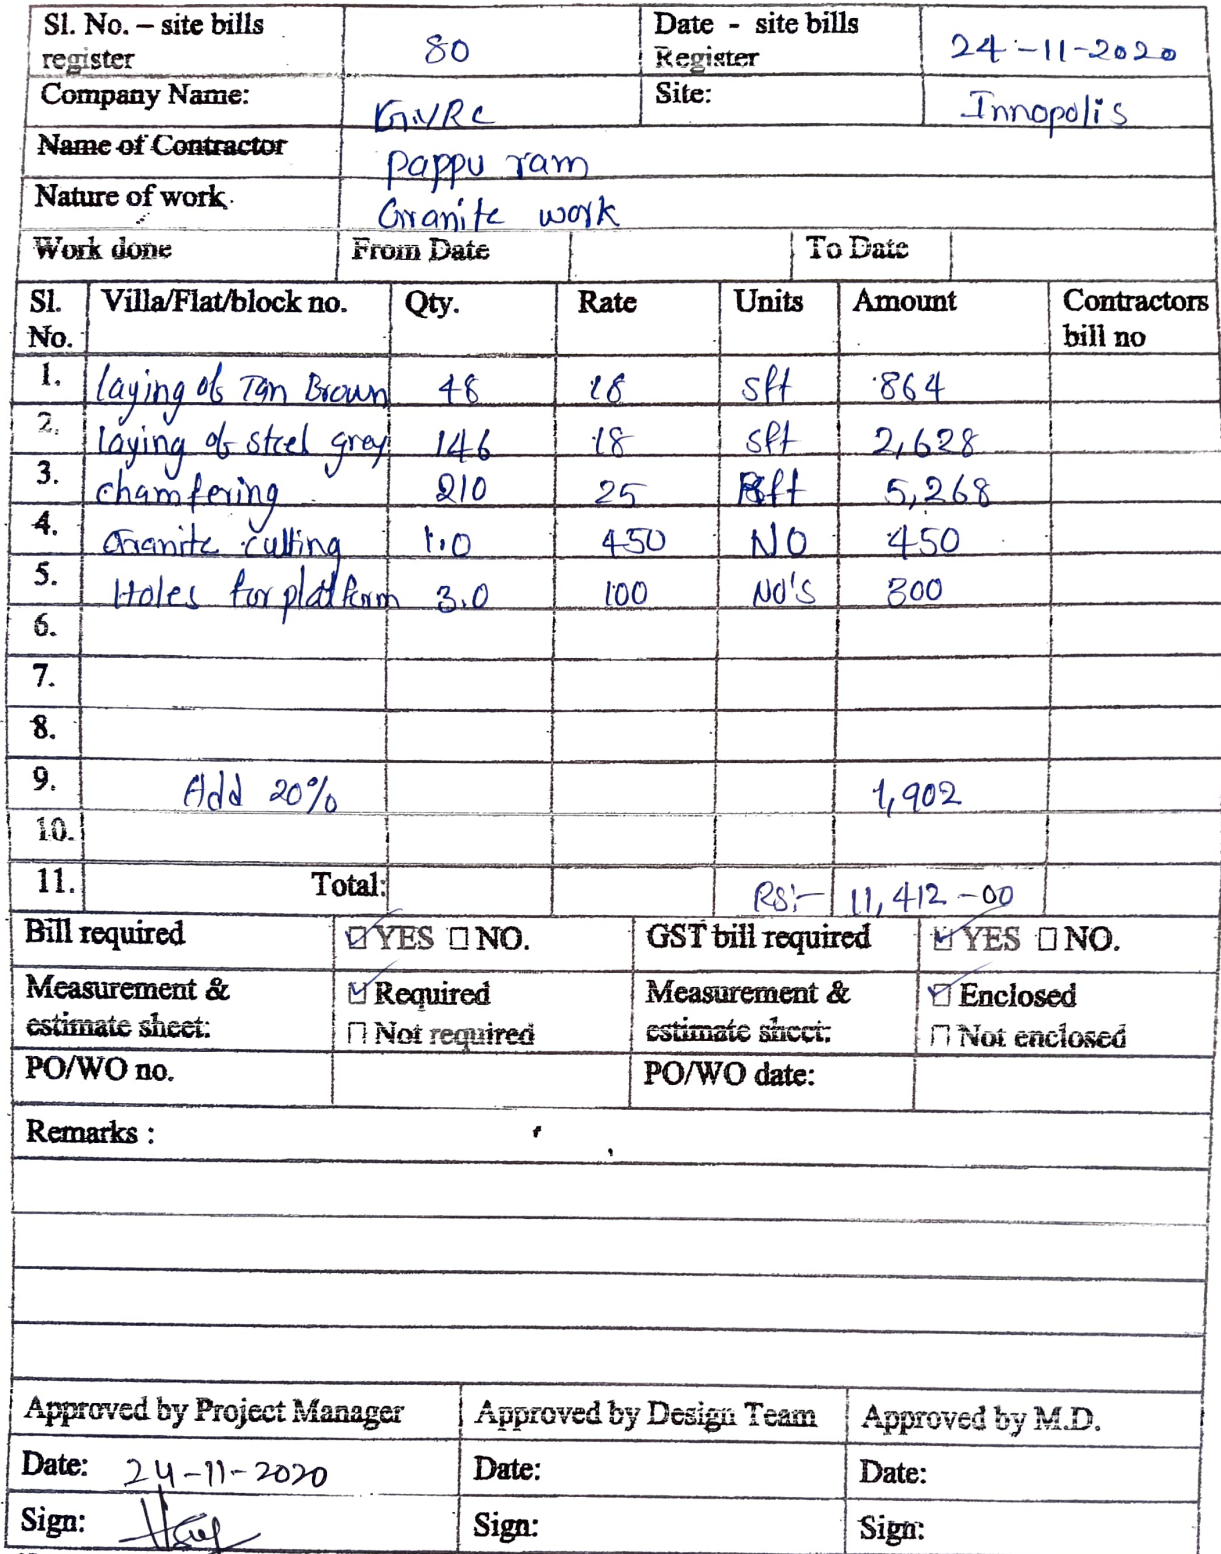 Sl. No. – site bills register 80 Date - site bills Register 24-11-2020
Company Name: GVRC Site: Innopolis
Name of Contractor pappu ram
Nature of work. Granite work
Work done From Date To Date
Sl. No. Villa/Flat/block no. Qty. Rate Units Amount Contractors bill no
1. laying of Tan Brown 48 18 sft 864
2. laying of steel grey 146 18 sft 2,628
3. chamfering 210 25 Rft 5,268
4. Granite cutting 1.0 450 NO 450
5. Holes for platform 3.0 100 No's 300
6.
7.
8.
9. Add 20% 1,902
10.
11. Total: Rs:- 11,412-00
Bill required ☑ YES ☐ NO. GST bill required ☑ YES ☐ NO.
Measurement & estimate sheet: ☑ Required ☐ Not required Measurement & estimate sheet: ☑ Enclosed ☐ Not enclosed
PO/WO no. PO/WO date:
Remarks :
Approved by Project Manager Approved by Design Team Approved by M.D.
Date: 24-11-2020 Date: Date:
Sign: Sign: Sign: